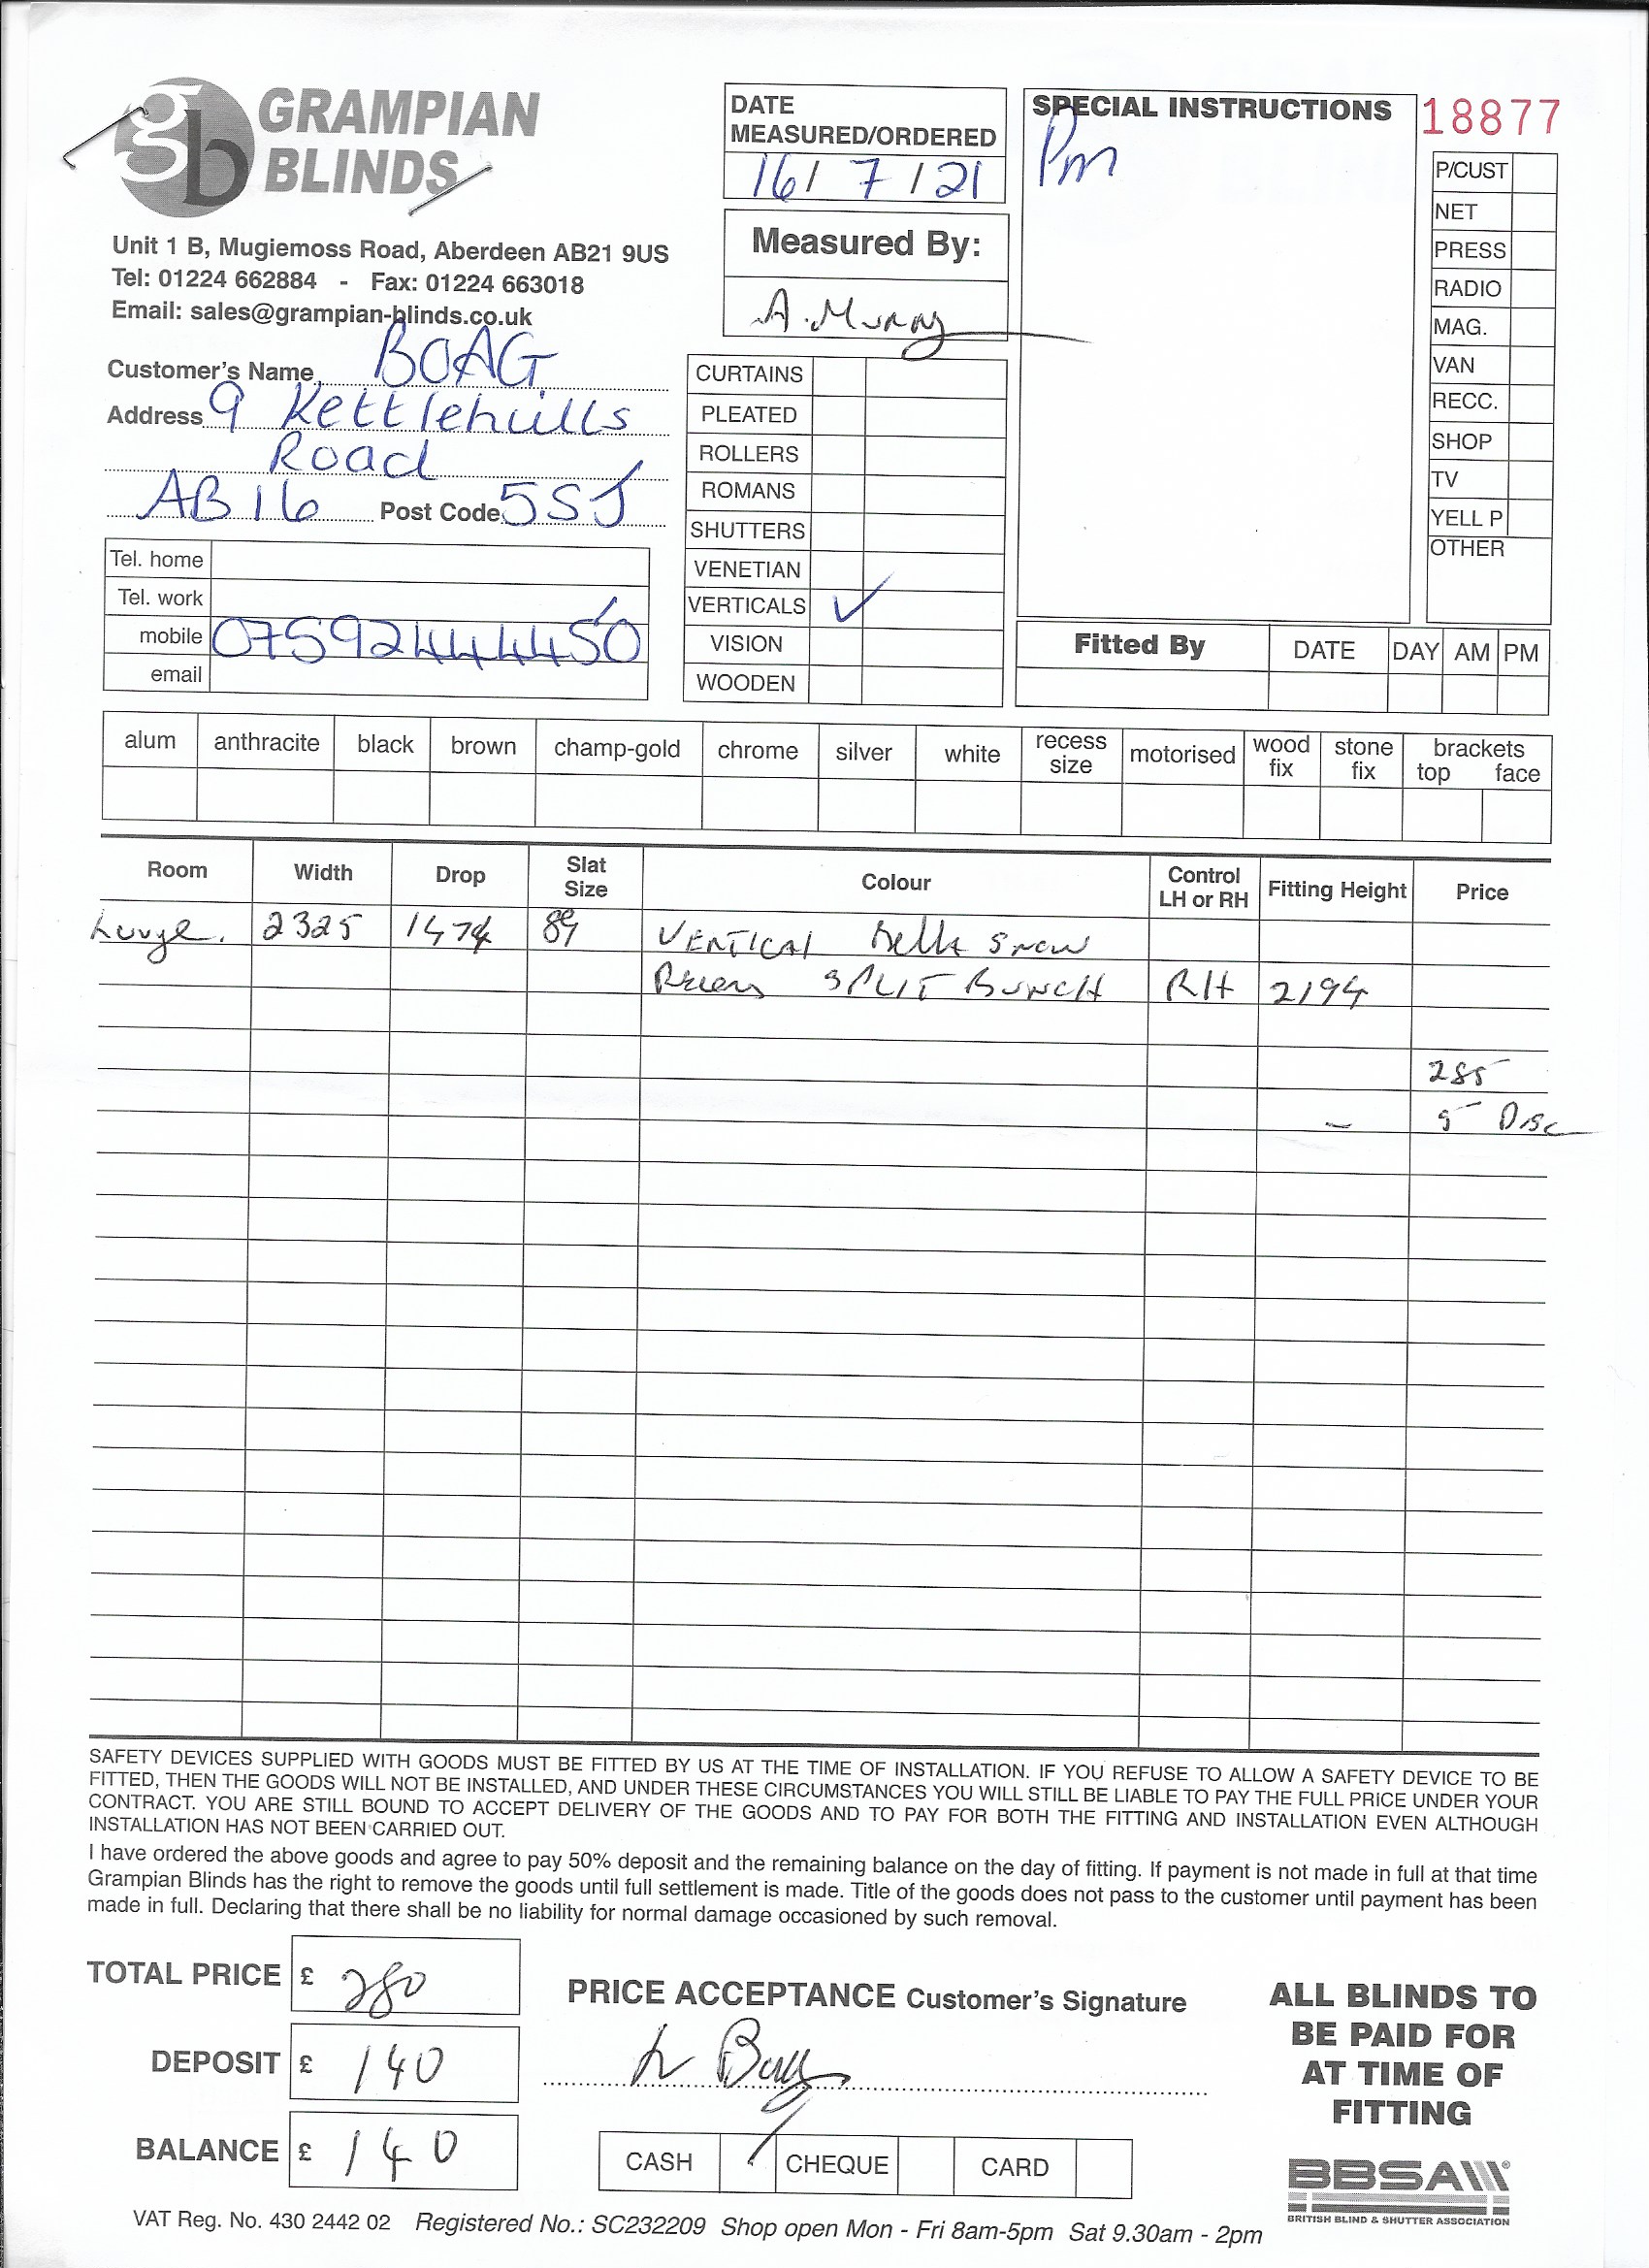 gb GRAMPIAN
BLINDS
Unit 1 B, Mugiemoss Road, Aberdeen AB21 9US
Tel: 01224 662884 - Fax: 01224 663018
Email: sales@grampian-blinds.co.uk
Customer's Name BOAG
Address 9 Kettlehills
Road
AB16 Post Code 5SJ
Tel. home
Tel. work
mobile 07592444450
email
DATE
MEASURED/ORDERED
16/ 7 / 21
Measured By:
A. Murray
CURTAINS
PLEATED
ROLLERS
ROMANS
SHUTTERS
VENETIAN
VERTICALS ✓
VISION
WOODEN
SPECIAL INSTRUCTIONS
Pm
18877
P/CUST
NET
PRESS
RADIO
MAG.
VAN
RECC.
SHOP
TV
YELL P
OTHER
Fitted By DATE DAY AM PM
alum anthracite black brown champ-gold chrome silver white recess size motorised wood fix stone fix brackets top face
Room Width Drop Slat Size Colour Control LH or RH Fitting Height Price
Lounge. 2325 1474 89 VERTICAL Bella Snow
Recess SPLIT BUNCH RH 2194
285
- 5 Disc
SAFETY DEVICES SUPPLIED WITH GOODS MUST BE FITTED BY US AT THE TIME OF INSTALLATION. IF YOU REFUSE TO ALLOW A SAFETY DEVICE TO BE
FITTED, THEN THE GOODS WILL NOT BE INSTALLED, AND UNDER THESE CIRCUMSTANCES YOU WILL STILL BE LIABLE TO PAY THE FULL PRICE UNDER YOUR
CONTRACT. YOU ARE STILL BOUND TO ACCEPT DELIVERY OF THE GOODS AND TO PAY FOR BOTH THE FITTING AND INSTALLATION EVEN ALTHOUGH
INSTALLATION HAS NOT BEEN CARRIED OUT.
I have ordered the above goods and agree to pay 50% deposit and the remaining balance on the day of fitting. If payment is not made in full at that time
Grampian Blinds has the right to remove the goods until full settlement is made. Title of the goods does not pass to the customer until payment has been
made in full. Declaring that there shall be no liability for normal damage occasioned by such removal.
TOTAL PRICE £ 280
DEPOSIT £ 140
BALANCE £ 140
PRICE ACCEPTANCE Customer's Signature
CASH CHEQUE CARD
ALL BLINDS TO
BE PAID FOR
AT TIME OF
FITTING
BBSA
BRITISH BLIND & SHUTTER ASSOCIATION
VAT Reg. No. 430 2442 02 Registered No.: SC232209 Shop open Mon - Fri 8am-5pm Sat 9.30am - 2pm